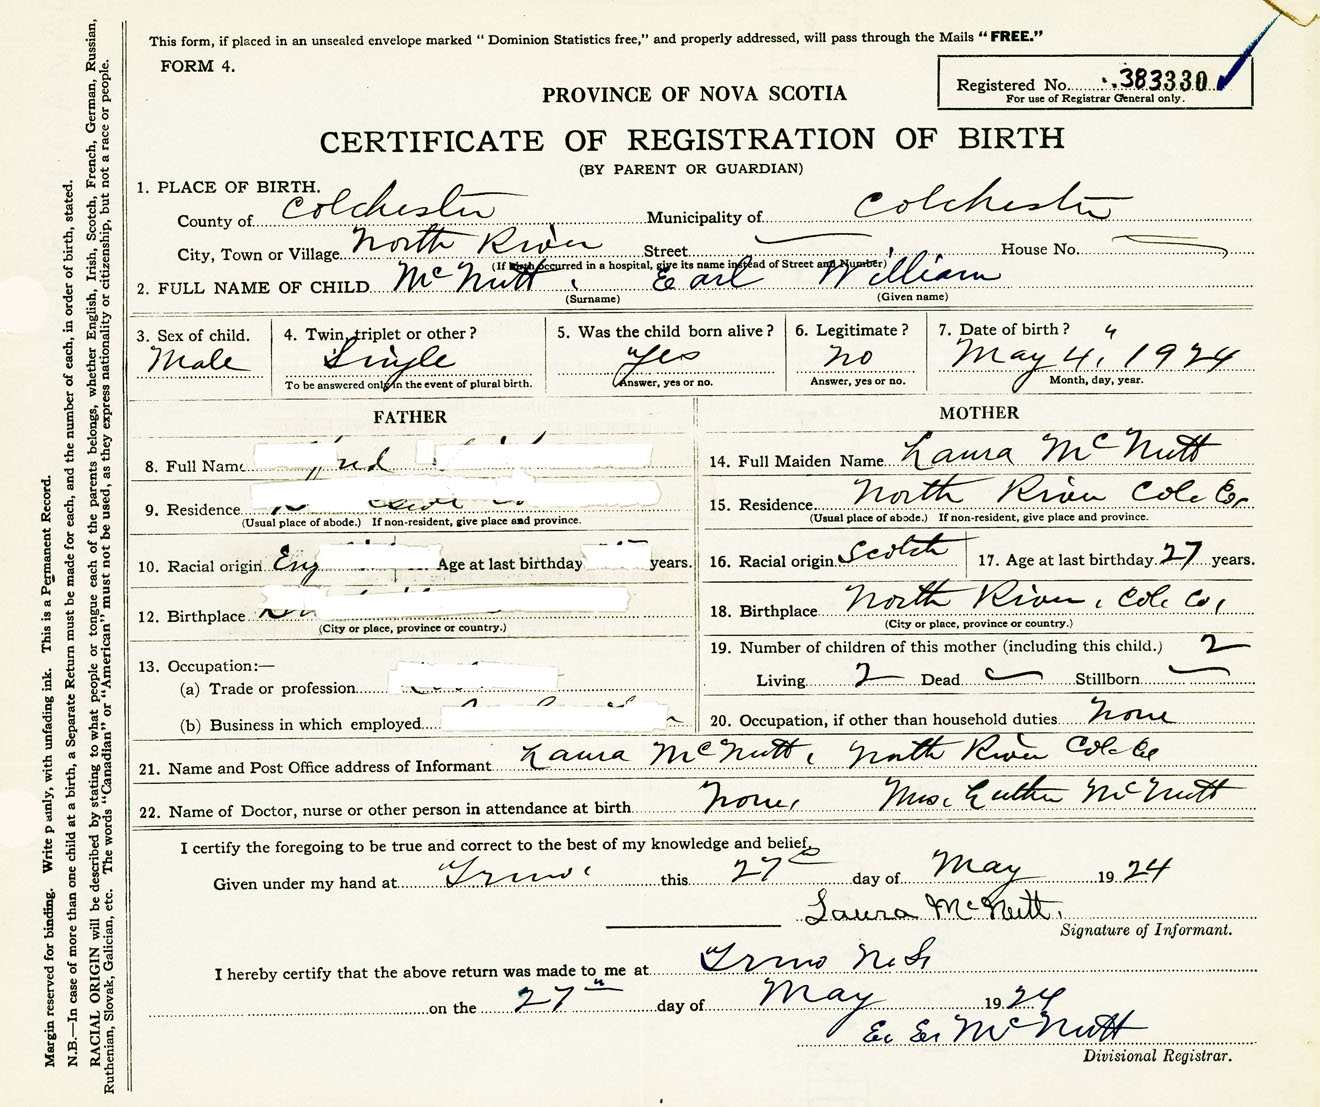 This form, if placed in an unsealed envelope marked " Dominion Statistics free," and properly addressed, will pass through the Mails " FREE."
FORM 4.
Registered No. 383330
For use of Registrar General only.
PROVINCE OF NOVA SCOTIA
CERTIFICATE OF REGISTRATION OF BIRTH
(BY PARENT OR GUARDIAN)
1. PLACE OF BIRTH.
County of Colchester Municipality of Colchester
City, Town or Village North River Street House No.
(If birth occurred in a hospital, give its name instead of Street and Number)
2. FULL NAME OF CHILD McNutt, Earl William
(Surname) (Given name)
3. Sex of child. 4. Twin, triplet or other? 5. Was the child born alive? 6. Legitimate? 7. Date of birth?
Male Single Yes No May 4", 1924
To be answered only in the event of plural birth. Answer, yes or no. Answer, yes or no. Month, day, year.
FATHER MOTHER
8. Full Name 14. Full Maiden Name Laura McNutt
9. Residence 15. Residence North River Col. Co.
(Usual place of abode.) If non-resident, give place and province. (Usual place of abode.) If non-resident, give place and province.
10. Racial origin Eng Age at last birthday years. 16. Racial origin Scotch 17. Age at last birthday 27 years.
12. Birthplace 18. Birthplace North River, Col. Co.,
(City or place, province or country.) (City or place, province or country.)
13. Occupation:— 19. Number of children of this mother (including this child.) 2
(a) Trade or profession Living 2 Dead Stillborn
(b) Business in which employed 20. Occupation, if other than household duties None
21. Name and Post Office address of Informant Laura McNutt, North River Col. Co
22. Name of Doctor, nurse or other person in attendance at birth None, Mrs. Luther McNutt
I certify the foregoing to be true and correct to the best of my knowledge and belief,
Given under my hand at Truro this 27 day of May 1924
Laura McNutt.
Signature of Informant.
I hereby certify that the above return was made to me at Truro N.S.
on the 27" day of May 1924
E. E. McNutt
Divisional Registrar.
Margin reserved for binding. Write plainly, with unfading ink. This is a Permanent Record.
N.B.—In case of more than one child at a birth, a Separate Return must be made for each, and the number of each, in order of birth, stated.
RACIAL ORIGIN will be described by stating to what people or tongue each of the parents belongs, whether English, Irish, Scotch, French, German, Russian,
Ruthenian, Slovak, Galician, etc. The words "Canadian" or "American" must not be used, as they express nationality or citizenship, but not a race or people.